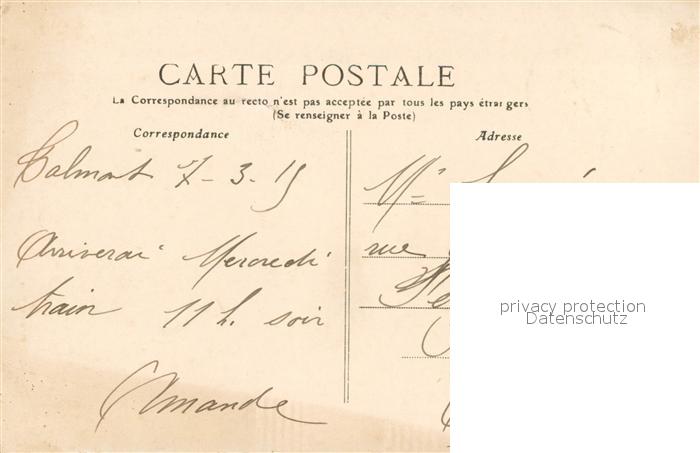 CARTE POSTALE
La Correspondance au recto n'est pas acceptée par tous les pays étrangers
(Se renseigner à la Poste)
Correspondance
Adresse
Talmont 7-3-15
Arriverai Mercredi
train 11 h. soir
Amande
Mr
rue
privacy protection
Datenschutz